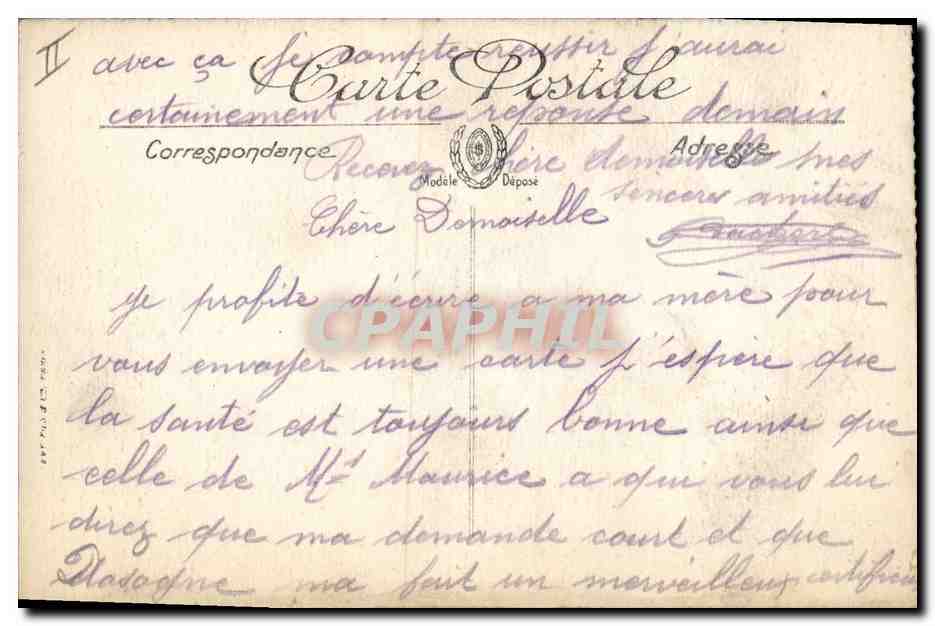 II
avec ça je compte reussir j'aurai
Carte Postale
certainement une reponse demain
Correspondance
Adresse
Recevez chère demoiselle mes
Modèle Déposé
senceres amitiés
Chère Demoiselle
Je profite d'écrire a ma mère pour
CPAPHIL
vous envoyer une carte j'espère que
la santé est toujours bonne ainsi que
celle de Mr Maurice a qui vous lui
direz que ma demande court et que
ma fait un merveilleux certificat